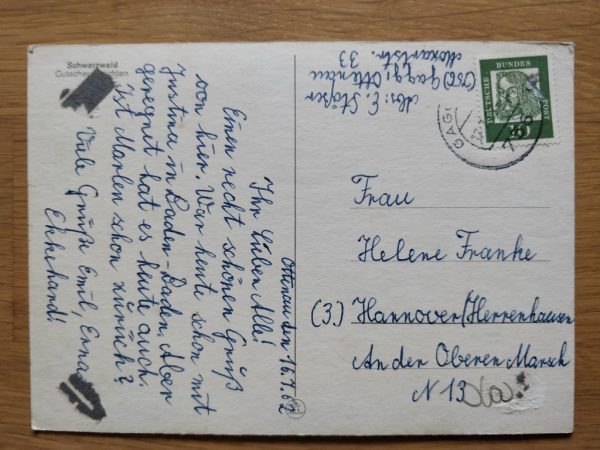 Schwarzwald
Ottenau den 16.7.62
Ihr Lieben Alle!
Einen recht schönen Gruß
von hier. War heute schon mit
Justina in Baden-Baden. Aber
geregnet hat es heute auch.
Ist Marlen schon zurück?
Viele Grüße Emil, Erna
Ekkehard!
Abs: E.
Ottenau
Mozartstr. 33
DEUTSCHE BUNDES POST
10
GAGG
Frau
Helene Franke
(3.) Hannover/Herrenhausen
An der Oberen Marsch
N 13